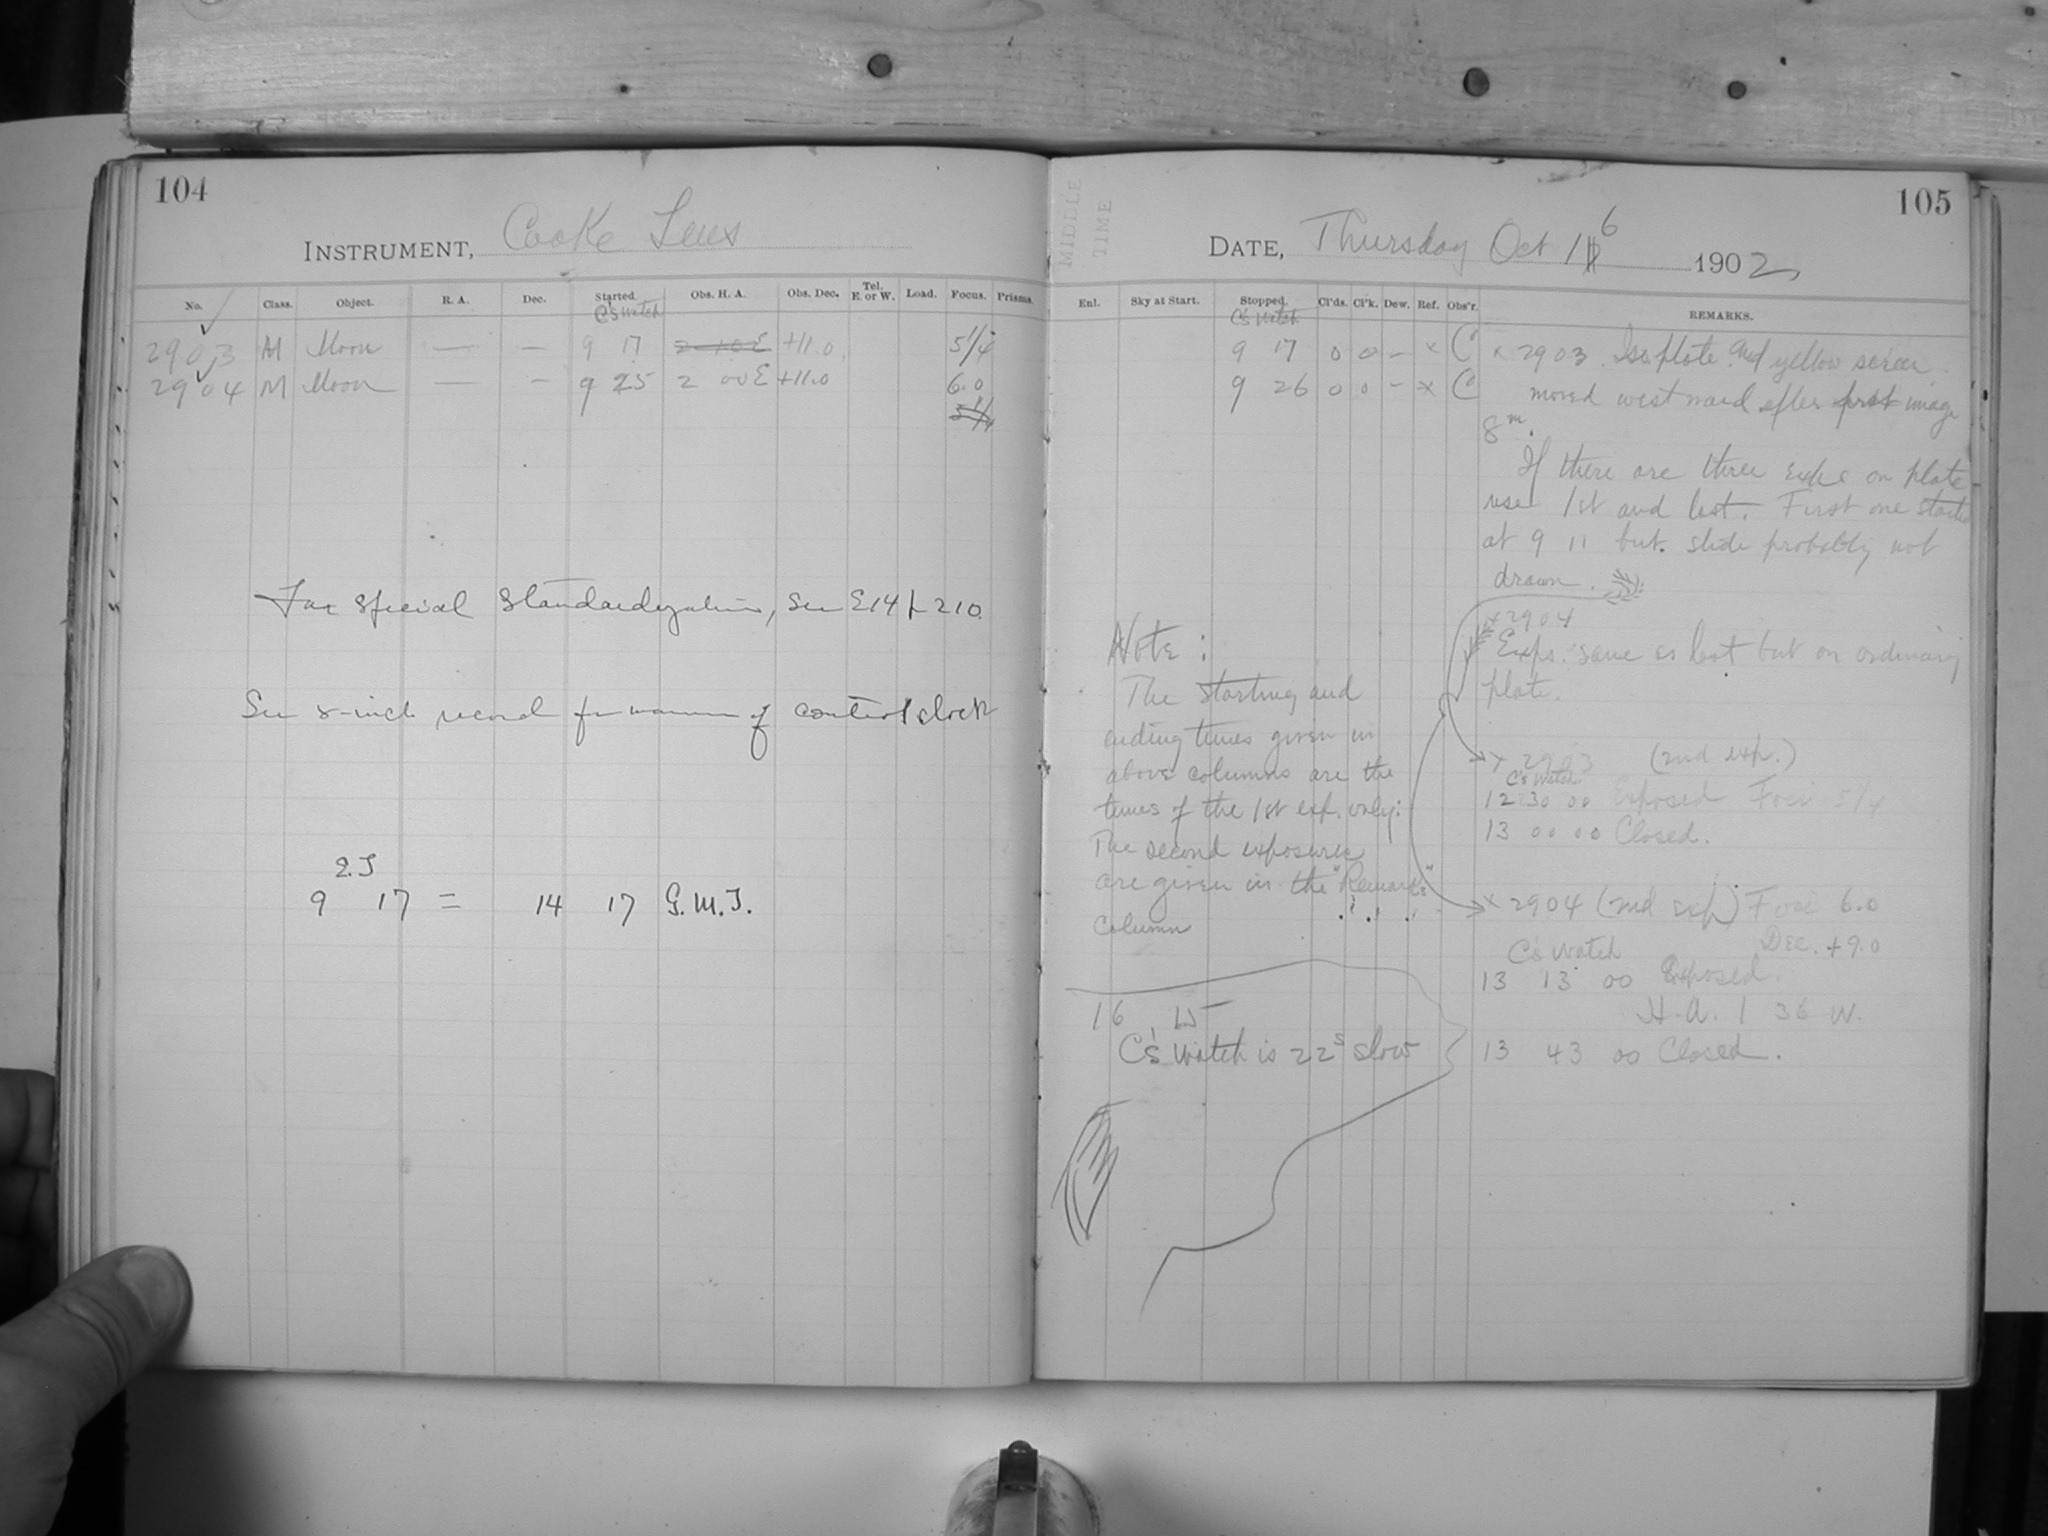 104
INSTRUMENT, Cooke Lens
No. Class. Object. R. A. Dec. Started. Obs. H. A. Obs. Dec. Tel. E. or W. Load. Focus. Prisms.
C's Watch
2903 M Moon — — 9 17 2 10 E +11.0 5 1/4
2904 M Moon — — 9 25 2 00 E +11.0 6.0
5 1/4
For special Standardization, see E14 p 210
See 8-inch record for manner of control clock
E.T
9 17 = 14 17 G.M.T.
105
MIDDLE
TIME
DATE, Thursday Oct 16 1902
Enl. Sky at Start. Stopped. Cl'ds. Cl'k. Dew. Ref. Obs'r. REMARKS.
C's Watch
9 17 0 0 – x C x 2903. Iso plate and yellow screen
9 26 0 0 – x C moved westward after first image
8m.
If there are three exps on plate
use 1st and last. First one started
at 9 11 but slide probably not
drawn.
x 2904
Exps. same as last but on ordinary
plate.
x 2903 (2nd exp.)
C's Watch
12 30 00 Exposed Foc. 5 1/4
13 00 00 Closed.
x 2904 (2nd exp) Foc. 6.0
Dec. +9.0
C's Watch
13 13 00 Exposed.
H.A. 1 36 W.
13 43 00 Closed.
Note :
The starting and
ending times given in
above columns are the
times of the 1st exp. only:
The second exposures
are given in the "Remarks"
Column
16 15
C's Watch is 22s slow